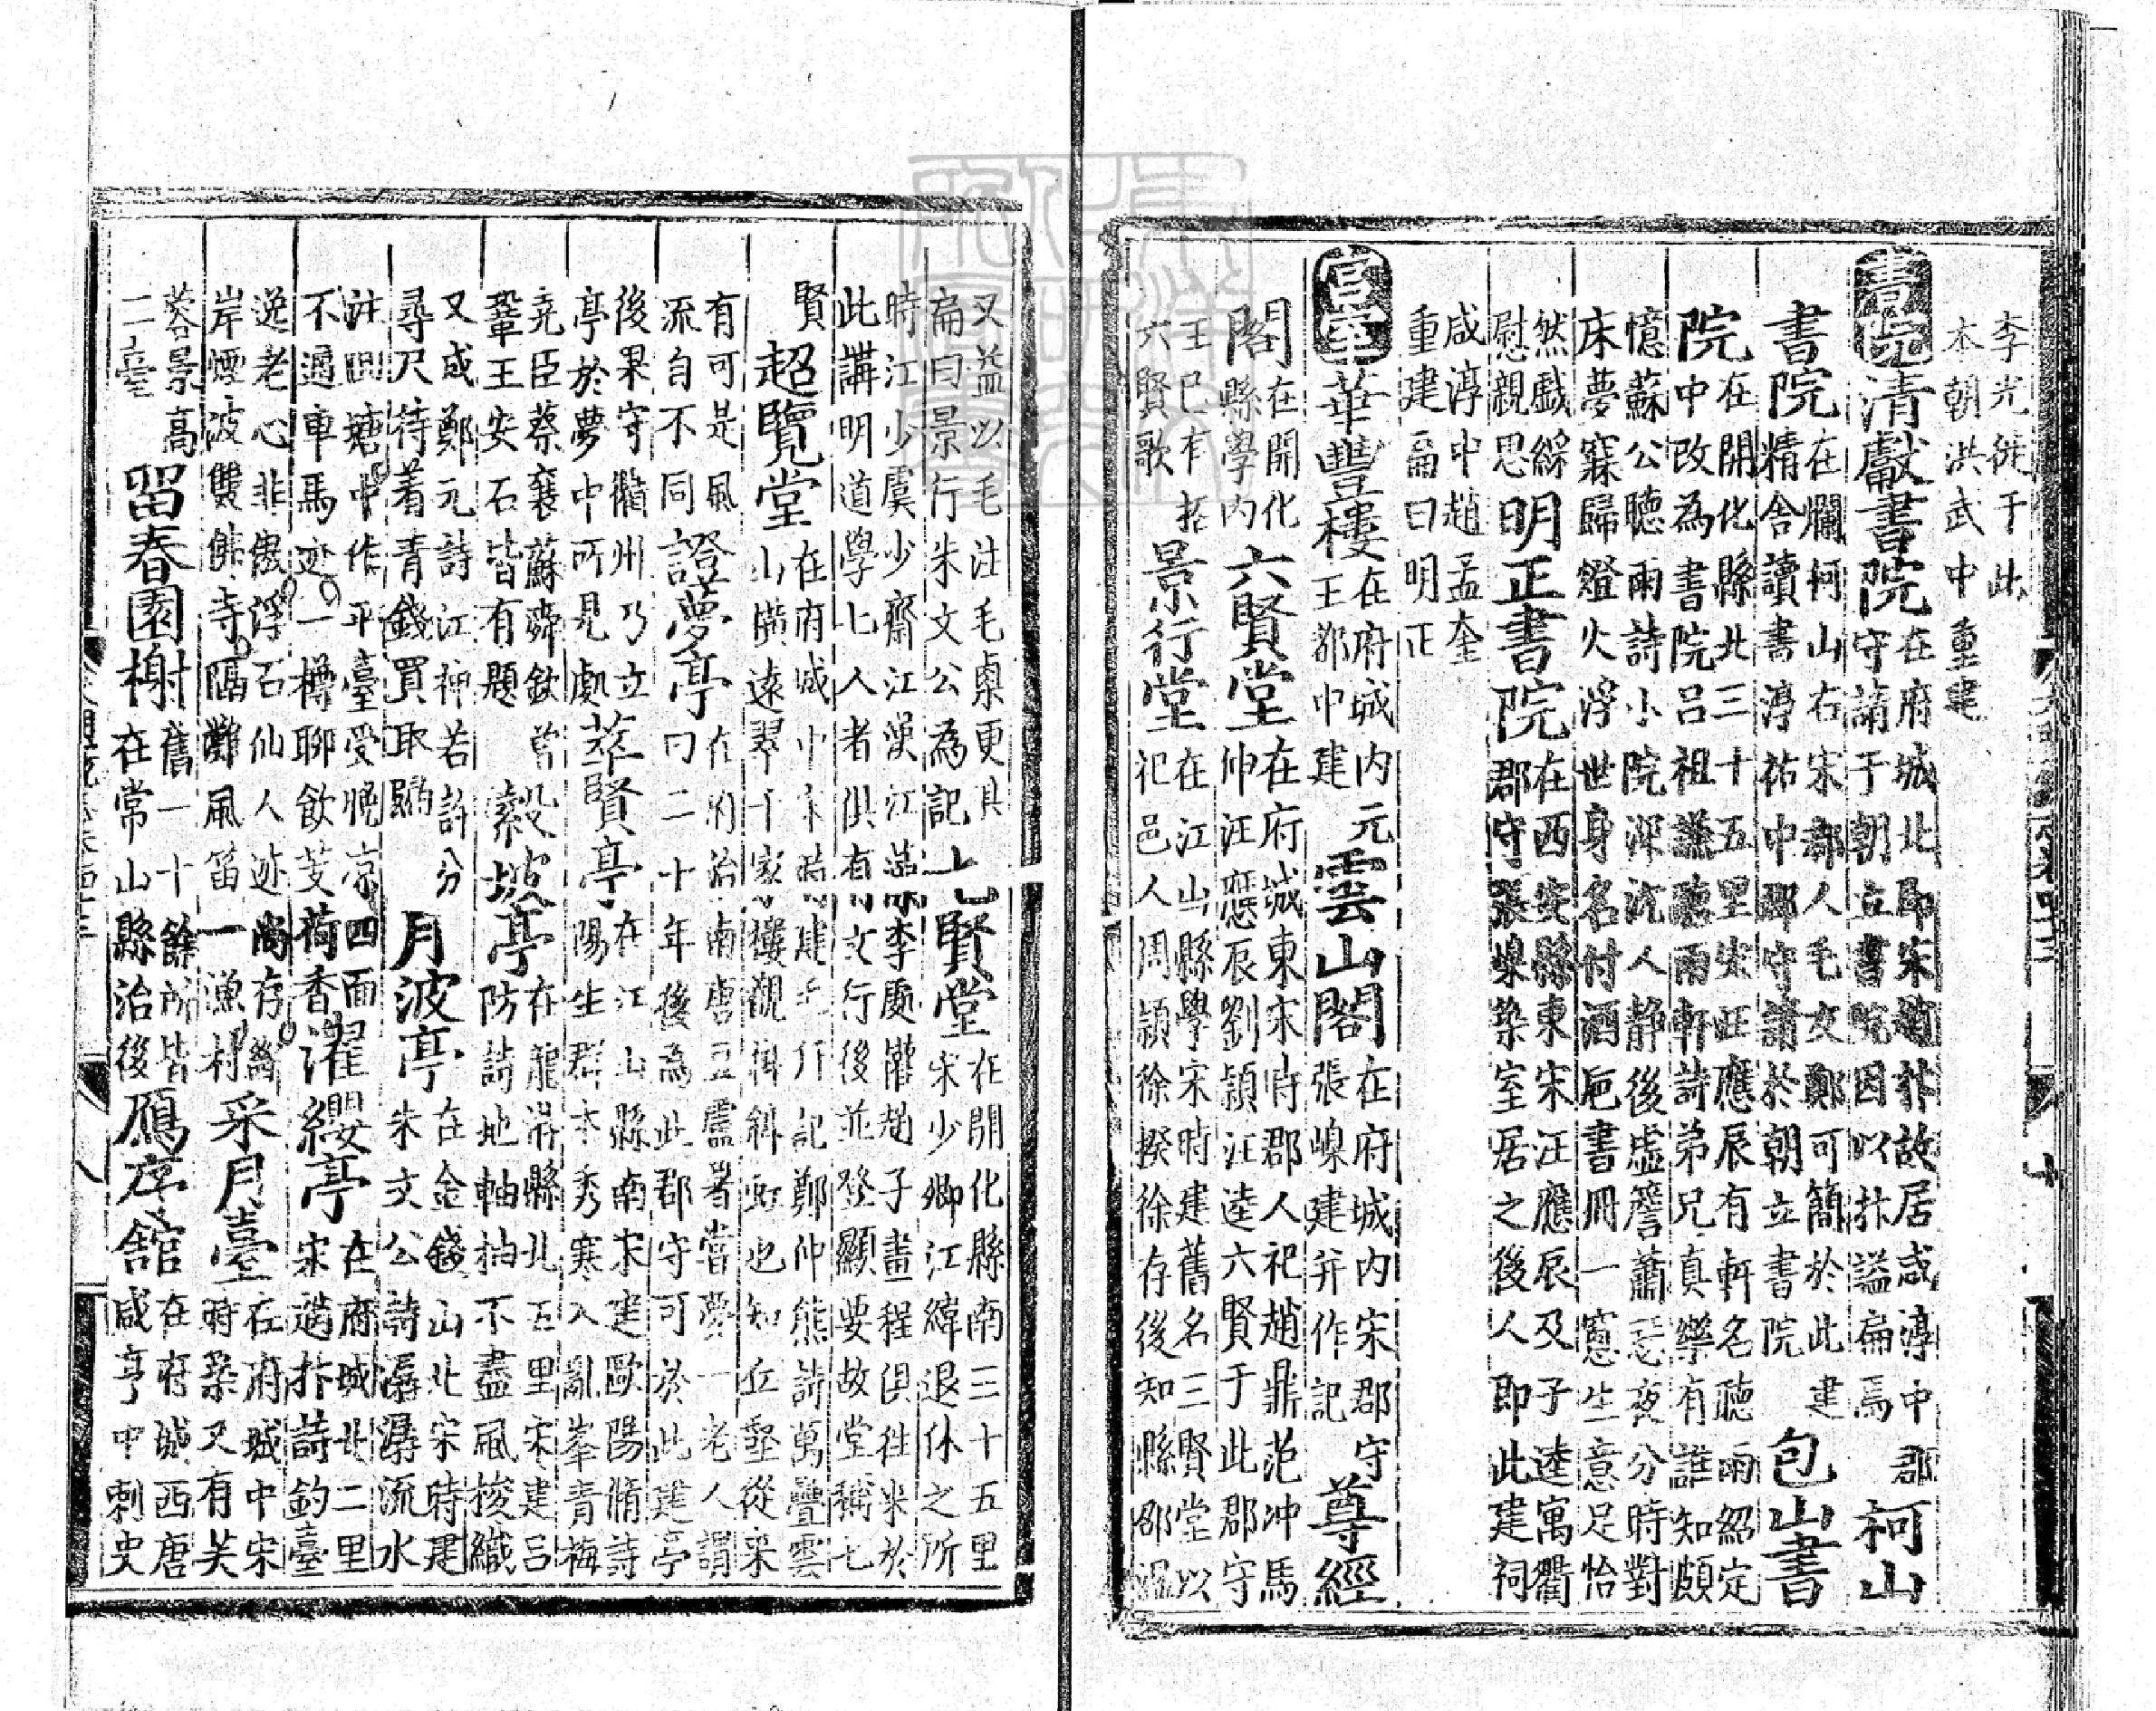 李光徙于此
本朝洪武中重建
書院清獻書院在府城北即宋趙抃故居咸淳中郡
守請于朝立書院因以抃謚扁焉柯山
書院在爛柯山右宋郡人毛文鄭可簡於此建
精舍讀書淳祐中郡守請於朝立書院包山書
院在開化縣北三十五里宋汪應辰有軒名聽雨紹定
中改為書院呂祖謙聽雨軒詩弟兄真樂有誰知頗
憶蘇公聽雨詩小院深沉人静後虛簷蕭瑟夜分時對
床夢寐歸燈火浮世身名付酒巵書冊一窓生意足怡
然戲綵
慰親思明正書院在西安縣東宋汪應辰及子逵寓衢
郡守張嵲築室居之後人即此建祠
咸淳中趙孟奎
重建扁曰明正
宮室華豐樓在府城内元
王都中建雲山閣在府城内宋郡守
張嵲建并作記尊經
閣在開化
縣學内六賢堂在府城東宋時郡人祀趙鼎范冲馬
伸汪應辰劉頴江逵六賢于此郡守
王巳有
六賢歌景行堂在江山縣學宋時建舊名三賢堂以
祀邑人周頴徐揆徐存後知縣邵溫
又益以毛注毛㮚更其
扁曰景行朱文公為記七賢堂在開化縣南三十五里
宋少卿江緯退休之所
時江少虞少齋江漢江葆李處權趙子晝程俱往來於
此講明道學七人者俱有文行後並登顯要故堂稱七
賢超覽堂在府城中宋時建毛幵記鄭仲熊詩萬疊雲
山横遠翠千家樓觀枓斜虹也知丘壑從来
有可是風
流自不同證夢亭在府治南唐豆盧署當夢一老人謂
曰二十年後為此郡守可於此建亭
後果守衢州乃立
亭於夢中所見處萃賢亭在江山縣南宋建歐陽脩詩
陽生群木秀寒入亂峯青梅
堯臣蔡襄蘇舜欽曾
鞏王安石皆有題縠坡亭在龍游縣北五里宋建吕
防詩地軸抽不盡風梭織
又成鄭元詩江神若許分
尋尺待着青錢買取歸月波亭在金錢山北宋時建
朱文公詩潺潺流水
注回塘中作平臺受晚凉四面
不通車馬迹一樽聊飲芰荷香濯纓亭在府城北二里
宋趙抃詩釣臺
逸老心非傲浮石仙人迹尚存繞
岸煙波雙佛寺隔灘風笛一漁村采月臺在府城中宋
時築又有芙
蓉景高
二臺留春園榭舊一十餘所皆
在常山縣治後鴈序舘在府城西唐
咸亨中刺史